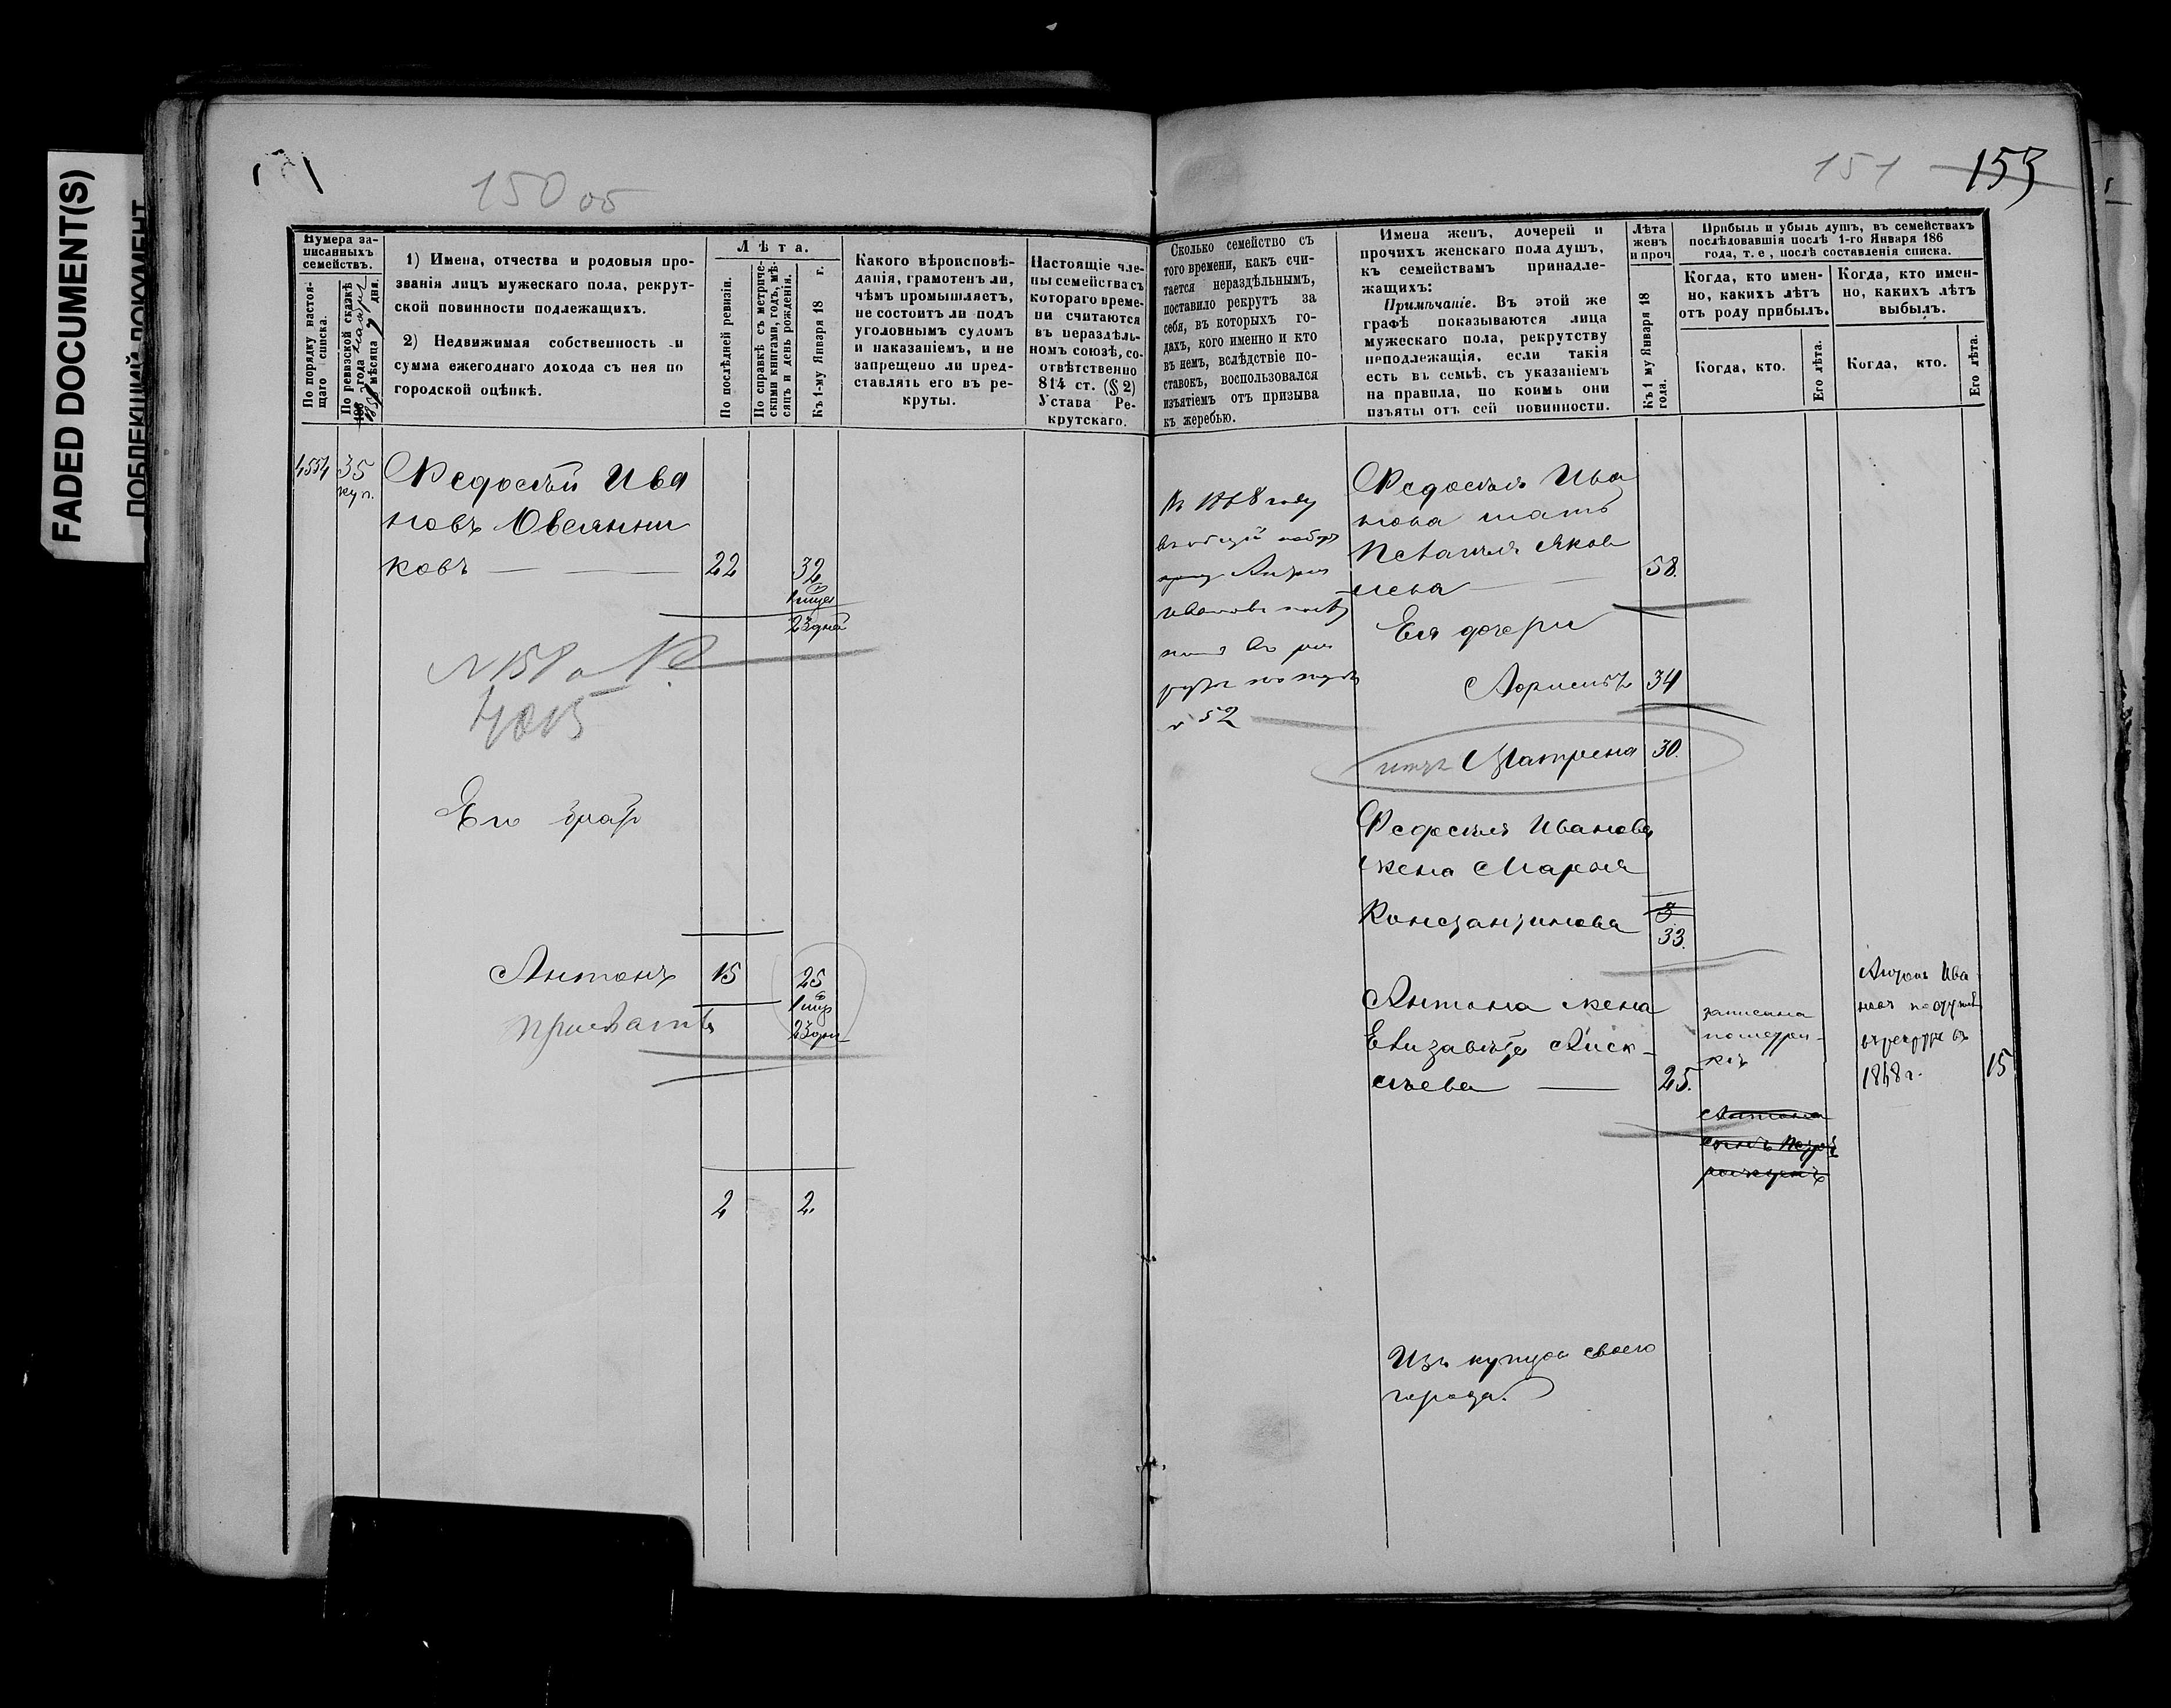 FADED DOCUMENT(S)
150 об
151 153
Нумера за-
писанныхъ
семействъ.
По порядку настоя-
щаго списка.
По ревизской сказкѣ
года
мѣсяца 9 дня.
1) Имена, отчества и родовыя про-
званія лицъ мужескаго пола, рекрут-
ской повинности подлежащихъ.
2) Недвижимая собственность и
сумма ежегоднаго дохода съ нея по
городской оцѣнкѣ.
Лѣта.
По послѣдней ревизіи.
По справкѣ съ метриче-
скими книгами, годъ, мѣ-
сяцъ и день рожденія.
Къ 1-му Января 18 г.
Какого вѣроисповѣ-
данія, грамотенъ ли,
чѣмъ промышляетъ,
не состоитъ ли подъ
уголовнымъ судомъ
и наказаніемъ, и не
запрещено ли пред-
ставлять его въ ре-
круты.
Настоящіе чле-
ны семейства съ
котораго време-
ни считаются
въ нераздѣль-
номъ союзѣ, со-
отвѣтственно
814 ст. (§ 2)
Устава Ре-
крутскаго.
Сколько семейство съ
того времени, какъ счи-
тается нераздѣльнымъ,
поставило рекрутъ за
себя, въ которыхъ го-
дахъ, кого именно и кто
въ немъ, вслѣдствіе по-
ставокъ, воспользовался
изъятіемъ отъ призыва
къ жеребью.
Имена женъ, дочерей и
прочихъ женскаго пола душъ,
къ семействамъ принадле-
жащихъ:
Примѣчаніе. Въ этой же
графѣ показываются лица
мужескаго пола, рекрутству
неподлежащія, если такія
есть въ семьѣ, съ указаніемъ
на правила, по коимъ они
изъяты отъ сей повинности.
Лѣта
женъ
и проч
Къ 1 му Января 18
года.
Прибыль и убыль душъ, въ семействахъ
послѣдовавшія послѣ 1-го Января 186
года, т. е , послѣ составленія списка.
Когда, кто имен-
но, какихъ лѣтъ
отъ роду прибылъ.
Когда, кто имен-
но, какихъ лѣтъ
выбылъ.
Когда, кто.
Его лѣта.
Когда, кто.
Его лѣта.
4554 35
куп.
Федосѣй Ива
новъ Овсянни
ковъ 22 32
23 дня
4015
Его братъ
Антонъ 15 25
23 дня
2 2
Въ 1868 году
Иванова
№ 52
Федосѣя Ива
нова мать
Пелагѣя Яков
лева 58.
Ея дочери
34
Матрена 30.
Федосѣя Иванова
жена Марья
Константинова 33.
Антона жена
Елизавета Алек-
сѣева 25.
записана
Антонъ Ива
новъ
въ рекруты въ
1868 г. 15
Антона
сынъ
Изъ купцов своего
города.